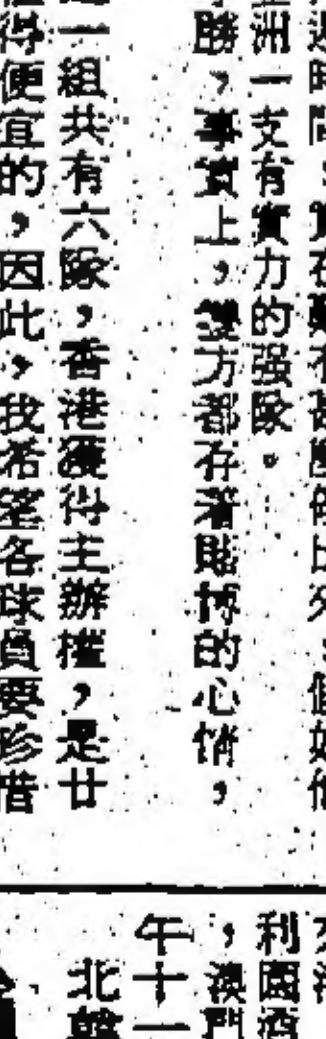 洲一支有實力的强隊。
勝，事實上，雙方都存著賭博的心情，
一組共有六隊，香港獲得主辦權，是廿
得便宜的，因此，我希望各球員要珍惜
利園酒
，澳門
午十一
北韓